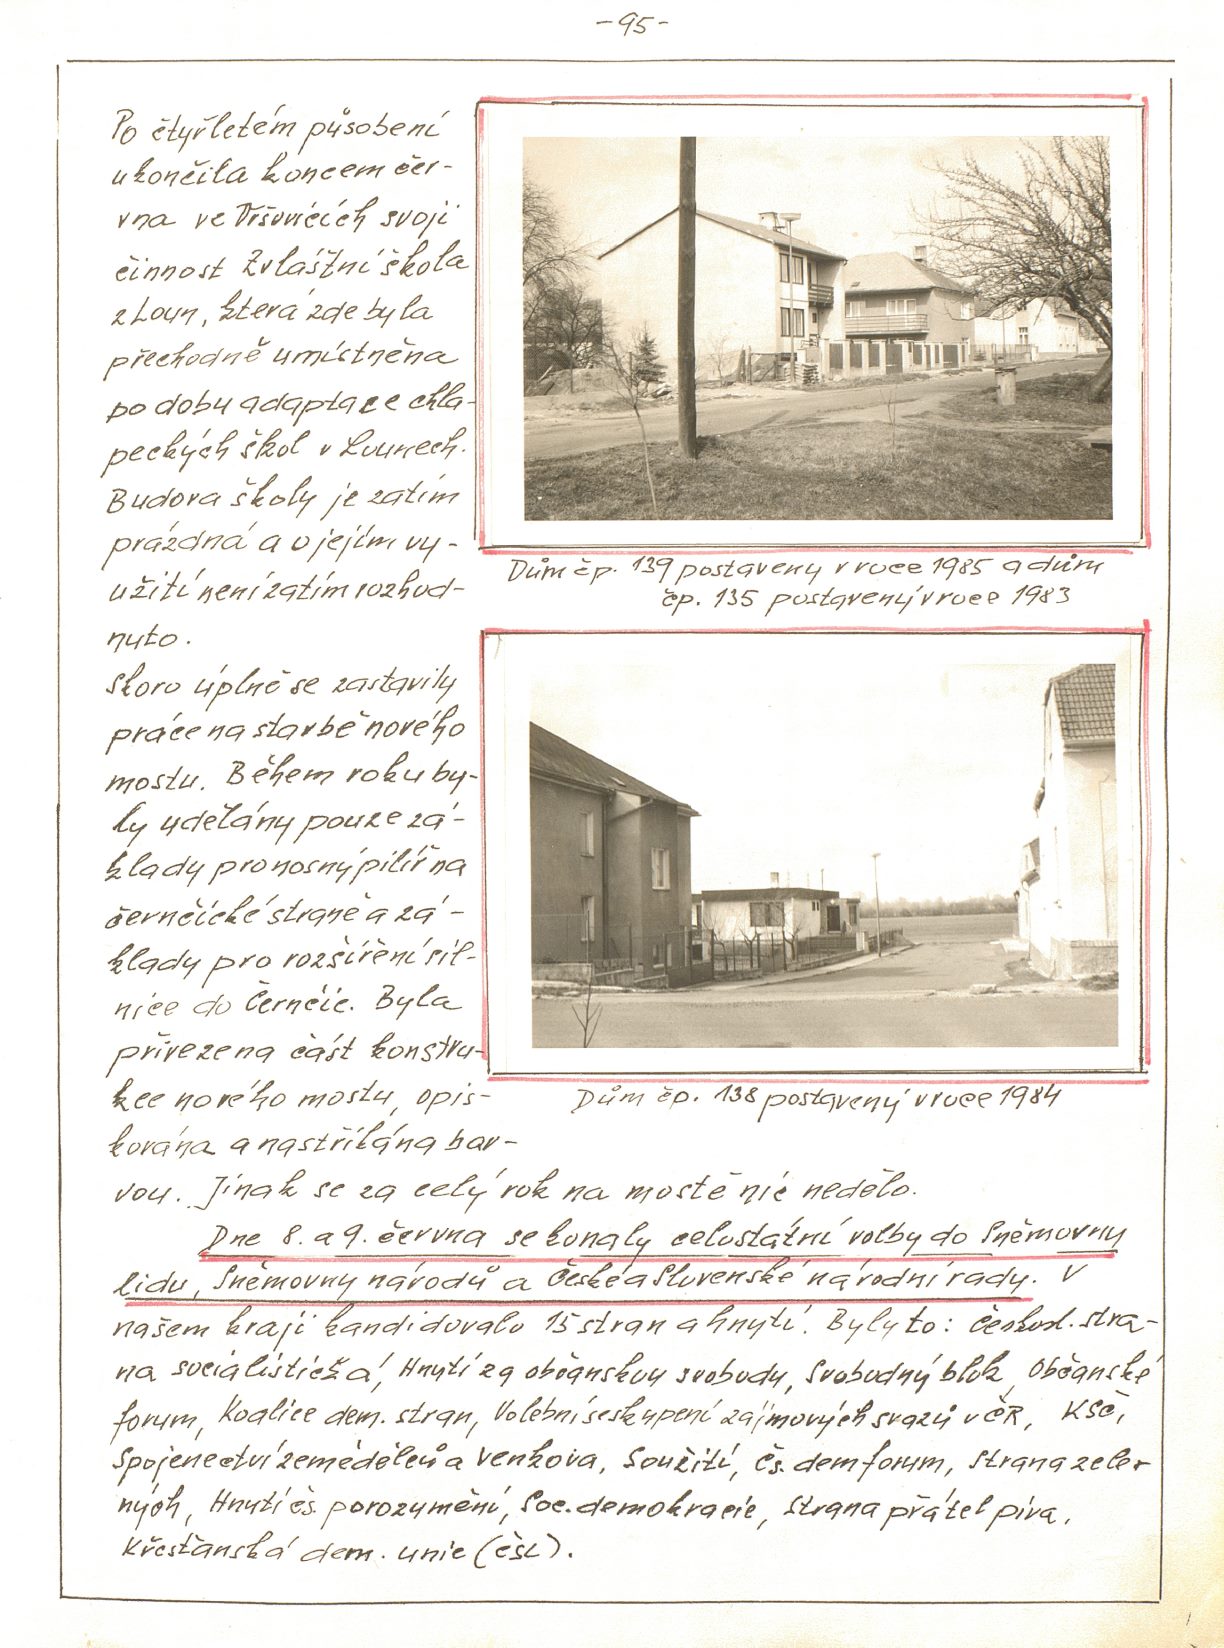 -95-
Po čtyřletém působení
ukončila koncem čer-
vna ve Vršovicích svoji
činnost Zvláštní škola
z Loun, která zde byla
přechodně umístněna
po dobu adaptace chla-
peckých škol v Lounech.
Budova školy je zatím
prázdná a o jejím vy-
užití není zatím rozhod-
nuto.
Skoro úplně se zastavily
práce na stavbě nového
mostu. Během roku by-
ly udělány pouze zá-
klady pro nosný pilíř na
černčické straně a zá-
klady pro rozšíření sil-
nice do Černčic. Byla
přivezena část konstru-
kce nového mostu, opis-
kována a nastříkána bar-
vou. Jinak se za celý rok na mostě nic nedělo.
Dům čp. 139 postavený v roce 1985 a dům
čp. 135 postavený v roce 1983
Dům čp. 138 postavený v roce 1984
Dne 8. a 9. června se konaly celostátní volby do Sněmovny
lidu, Sněmovny národů a České a Slovenské národní rady. V
našem kraji kandidovalo 15 stran a hnutí. Byly to: Českosl. stra-
na socialistická, Hnutí za občanskou svobodu, Svobodný blok, Občanské
forum, Koalice dem. stran, Volební seskupení zájmových svazů v ČR, KSČ,
Spojenectví zemědělců a venkova, Soužití, Čs. dem forum, Strana zele-
ných, Hnutí čs. porozumění, Soc. demokracie, Strana přátel piva,
Křesťanská dem. unie (ČSL).